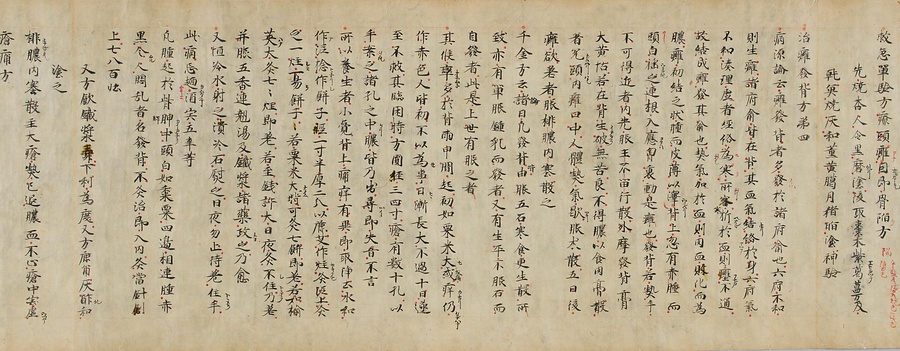 救急單驗方療頸癰
先燒杏人令黑磨陰
燒灰和薑黃陷陰神驗
治癰發背方第四
病源論云癰發背者多發於諸府俞也六府不和
則生癰諸府俞皆在背其血氣經絡於身六府氣
不和湊理虛者經絡為寒所客寒折於血則壅不通
故結成癰發其俞也熱氣加於血則肉血敗化而為
膿癰初結之狀腫而皮薄以澤背上忽有赤腫而
頭白搖之連根入應胸裏動是癰也發背若熱手
不可得近者內先服王不留行散外摩發背膏
大黃怗若在背生破無苦良久不得膿以食肉膏散
著兌頭內癰口中人體熱氣歇服木散五日後
癰欲差者服排膿內塞散之
千金方云諸凡發背由服五石寒食更生散所
致亦有單服鍾乳而發者又有生平不服石而
自發者此是上世有服之者
其候率多於背兩胛間起初如粟米大或痒仍
作赤色人皆初不以為事日漸長大不過十日遂
至不救其臨困時方圓徑三四寸瘡有數十孔以
手案之諸孔之中膿皆乃出尋即失音不言
所以養生者小覺背上痛痒有異即取淨土水和
作泥捻作餅子徑一寸半厚二分以麁艾作炷灸泥上灸
之一炷一易餅子若粟米大時可灸七餅即差若如榆
莢大灸七々炷即差若金錢許大日夜灸不住乃差
并服五香連翹湯及鐵漿諸藥攻之方愈
又恒冷水射之漬冷石熨之日夜勿止待差住手
此病忌麵酒完五辛等
凡腫起於背胛中頭白如黍粟四邊相連腫赤
黑令人悶亂者名發背不灸治即入內灸當創
上七八百壯
又方飲鐵漿下利為度又方灰酢和
塗之
排膿內塞散主大瘡熱已退膿血不止瘡中
疼痛方